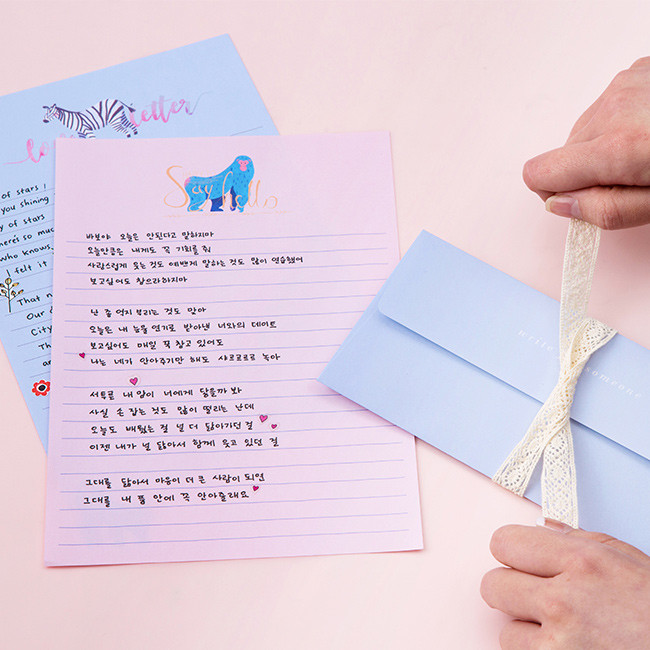 letter
of stars !
you shining
of stars
so much
who knows,
felt it
That
Our
City
Say hello
바보야 오늘은 안된다고 말하지마
오늘만큼은 내게도 꼭 기회를 줘
사랑스럽게 웃는 것도 예쁘게 말하는 것도 많이 연습했어
보고싶어도 참으라하지마
난 좀 억지 부리는 것도 많아
오늘은 내 눈물 연기로 받아낸 너와의 데이트
보고싶어도 매일 꾹 참고 있어도
나는 네가 안아주기만 해도 사르르르르 녹아
서투른 내 맘이 너에게 닿을까 봐
사실 손 잡는 것도 많이 떨리는 난데
오늘도 배웠는 걸 널 더 닮아가던 걸
이젠 내가 널 닮아서 함께 웃고 있던 걸
그대를 닮아서 마음이 더 큰 사람이 되면
그대를 내 품 안에 꼭 안아줄래요
write someone